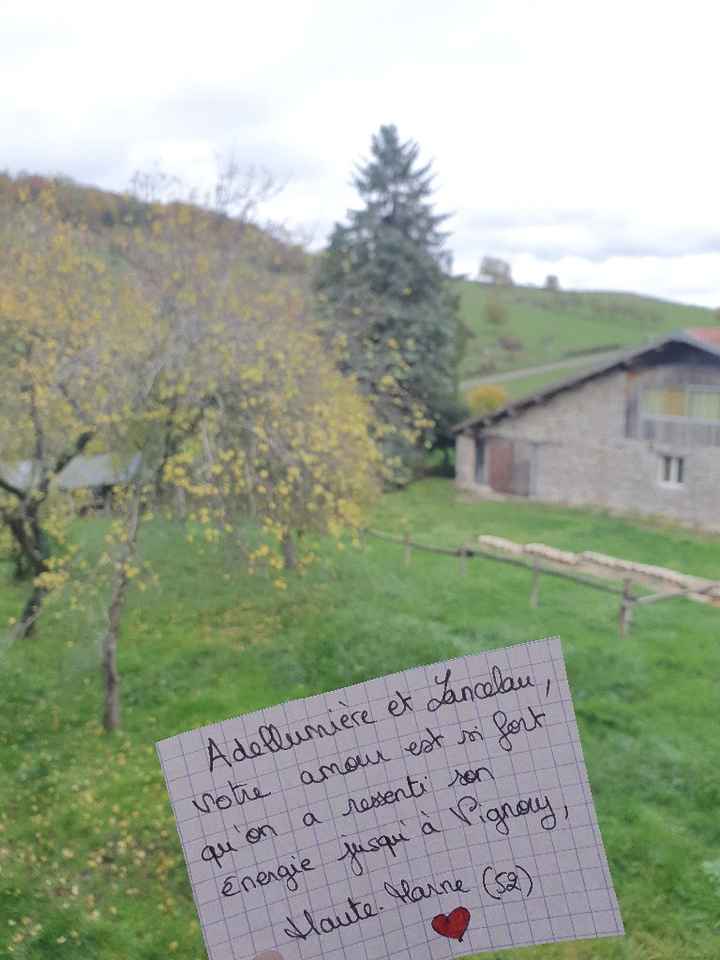 Adellumière et Lancelau,
votre amour est si fort
qu'on a ressenti son
énergie jusqu'à Vignory,
Haute-Marne (52)